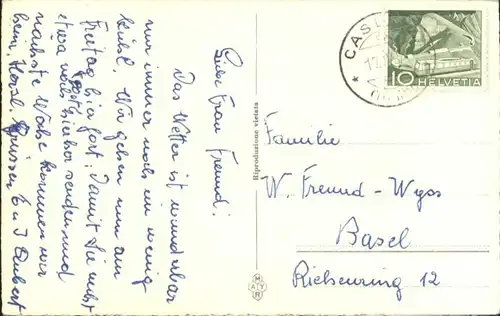 Liebe Frau Freund!
Das Wetter ist wunderbar
nur immer noch ein wenig
kühl. Wir gehen nun am
Freitag hier fort. Damit Sie nicht
etwa noch Post hierher senden und
nächste Woche kommen wir
heim. Herzl. Grüssen E u J
CASL
HELVETIA
10
Riproduzione vietata
MAYR
Familie
W. Freund-Wyss
Basel
Riehenring 12